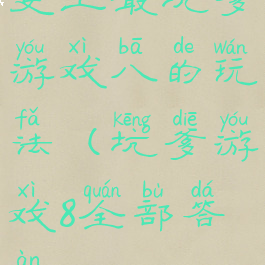 史上最坑爹
yóu xì bā de wán
游戏八的玩
fǎ kēng diē yóu
法（坑爹游
xì quán bù dá
戏8全部答
àn